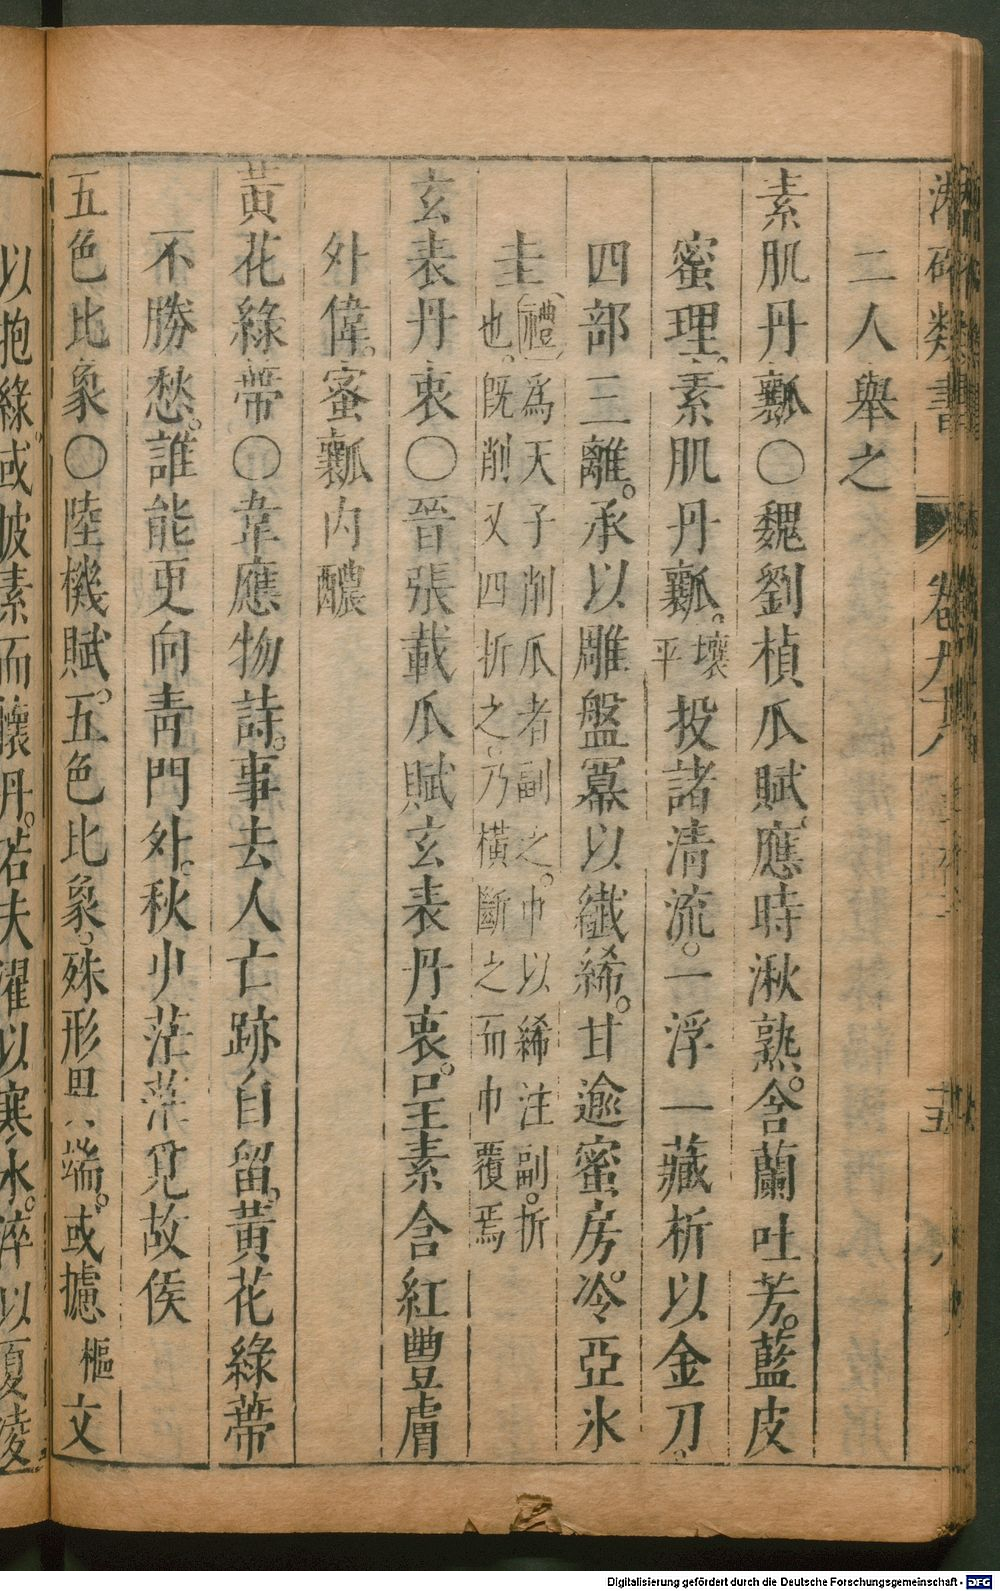 類書
二人舉之
素肌丹瓤〇魏劉楨瓜賦。應時湫熟。含蘭吐芳。藍皮
蜜理。素肌丹瓤。壤平投諸清流。一浮一藏析以金刀。
四部三離。承以雕盤冪以纖絺。甘逾蜜房。冷亞氷
圭禮為天子削瓜者副之。巾以絺注副。折
也。既削又四折之。乃橫斷之而巾覆焉
玄表丹衷〇晉張載瓜賦玄表丹衷。呈素含紅豐膚
外偉。蜜瓤内醲
黃花綠蔕〇韋應物詩。事去人亡跡自留。黃花綠蔕
不勝愁。誰能更向青門外。秋少茫茫覓故侯
五色比象〇陸機賦。五色比象。殊形異端。或攄樞文
以抱綠。或披素而懷丹。若夫濯以寒氷。淬以夏凌
Digitalisierung gefördert durch die Deutsche Forschungsgemeinschaft - DFG